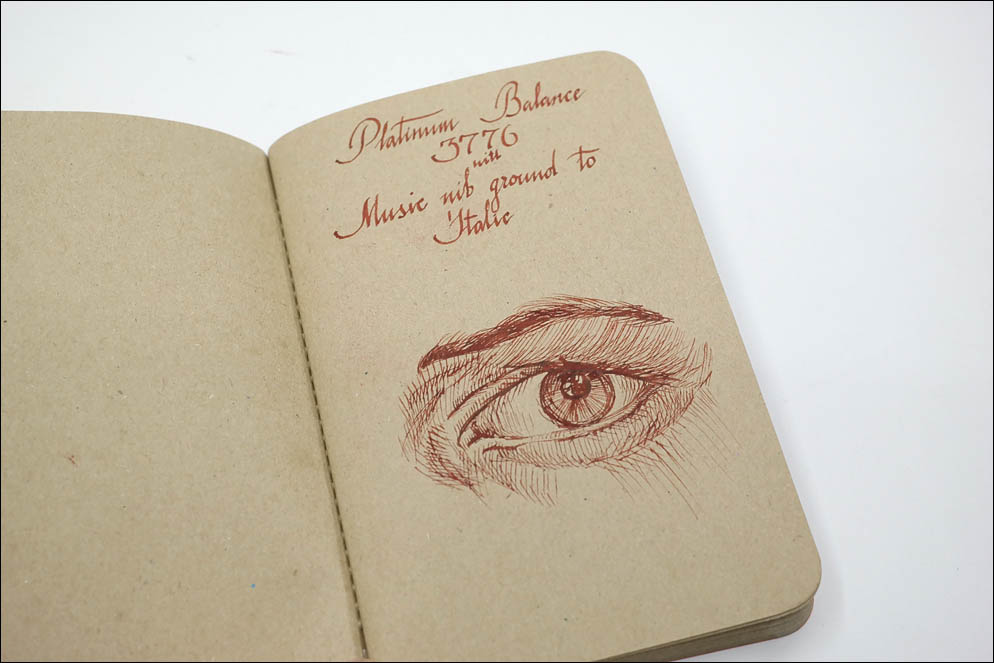 Platinum Balance
3776
Music nib ground to
Italic